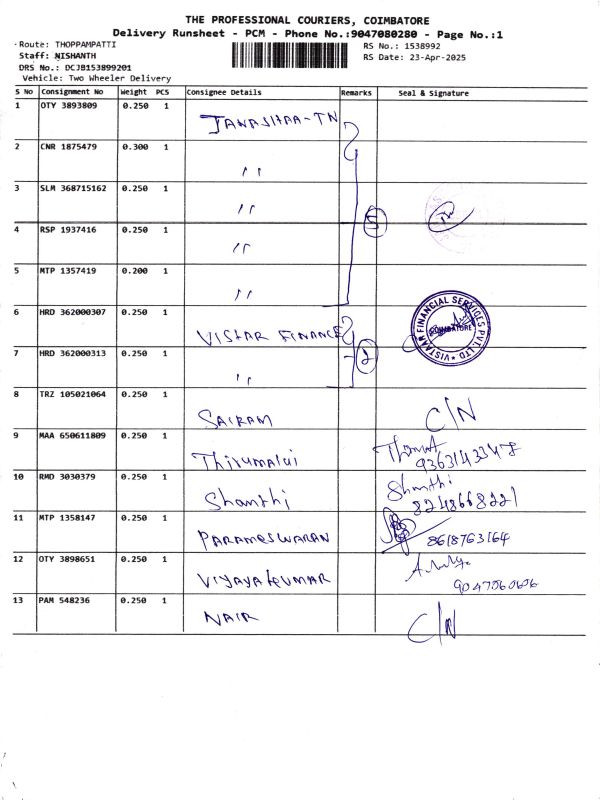 THE PROFESSIONAL COURIERS, COIMBATORE
Delivery Runsheet - PCM - Phone No.:9047080280 - Page No.:1
Route: THOPPAMPATTI
RS No.: 1538992
Staff: NISHANTH
RS Date: 23-Apr-2025
DRS No.: DCJB153899201
Vehicle: Two Wheeler Delivery
S No Consignment No Weight PCS Consignee Details Remarks Seal & Signature
1 OTY 3893809 0.250 1
2 CNR 1875479 0.300 1 〃
3 SLM 368715162 0.250 1 〃
4 RSP 1937416 0.250 1 〃 5
5 MTP 1357419 0.200 1 〃
6 HRD 362000307 0.250 1 VISTAR FINANCE VISTAAR FINANCIAL SERVICES PVT. LTD COIMBATORE
7 HRD 362000313 0.250 1 〃 2
8 TRZ 105021064 0.250 1 SAIRAM C/N
9 MAA 650611809 0.250 1 Thirumalai
10 RMD 3030379 0.250 1 Shanthi Shanthi 8248668221
11 MTP 1358147 0.250 1 PARAMESWARAN 8618763164
12 OTY 3898651 0.250 1 VIJAYAKUMAR
13 PAM 548236 0.250 1 NAIR C/N